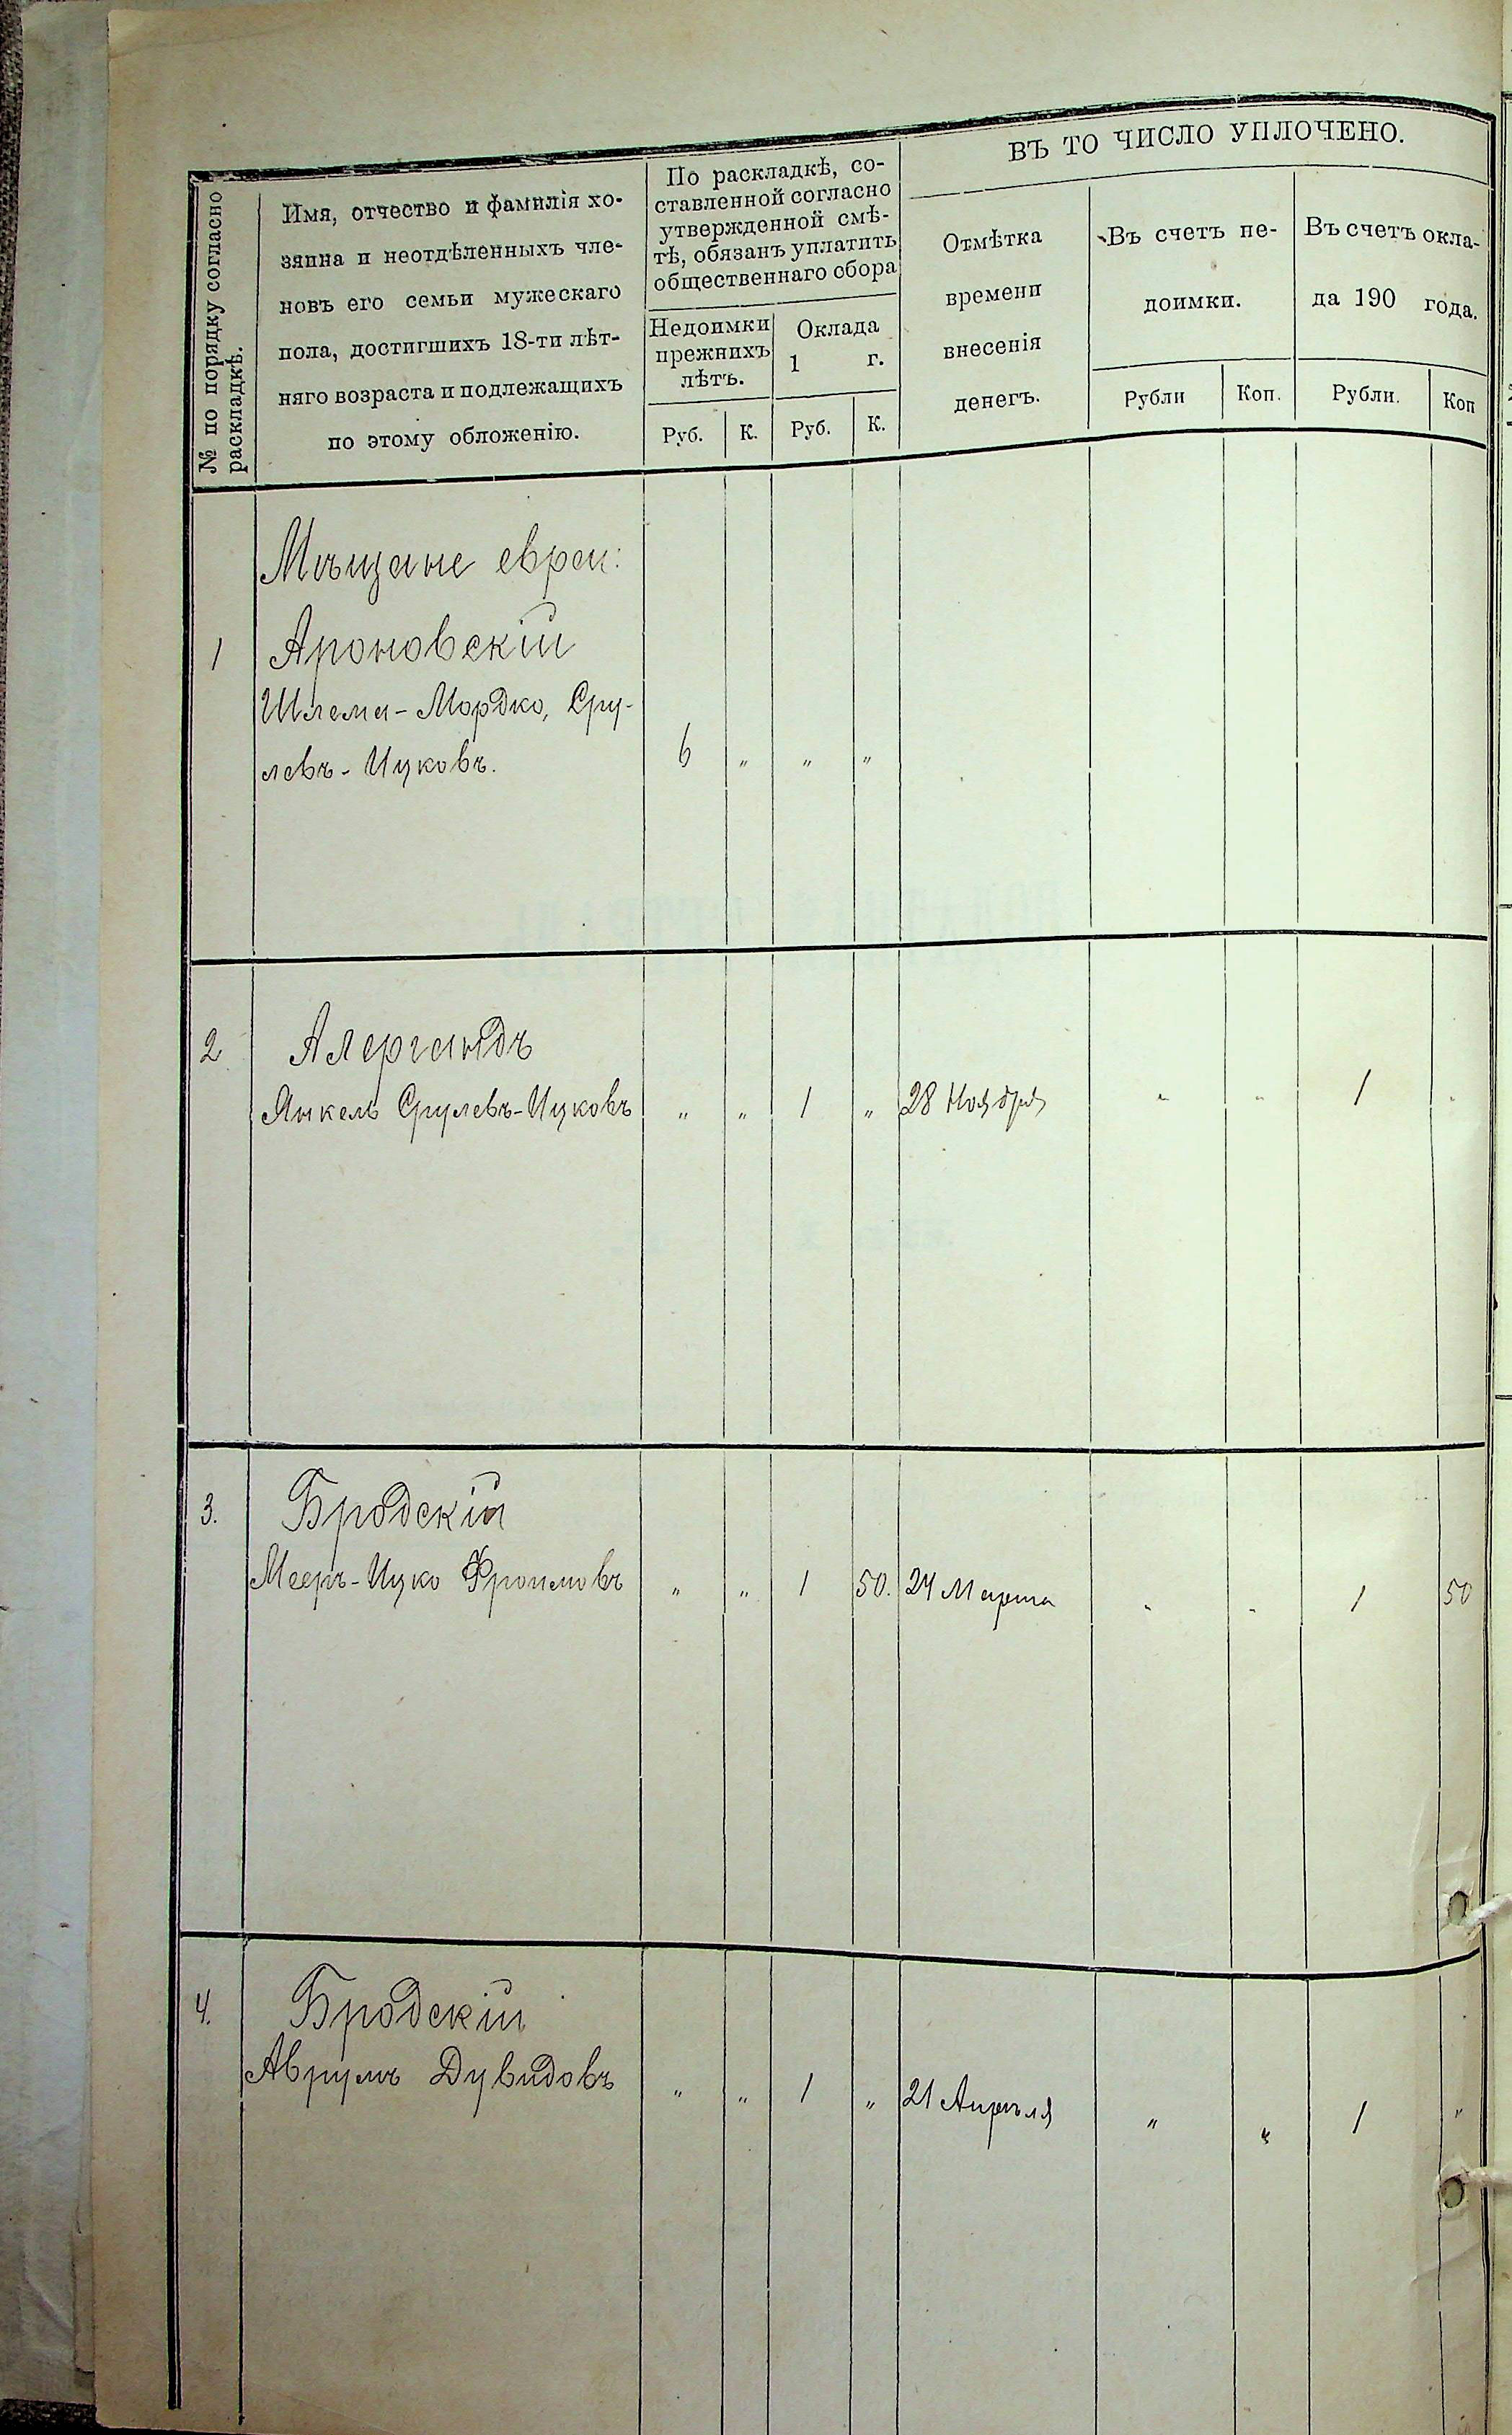 № по порядку согласно
раскладкѣ.
Имя, отчество и фамилія хо-
зяина и неотдѣленныхъ чле-
новъ его семьи мужескаго
пола, достигшихъ 18-ти лѣт-
няго возраста и подлежащихъ
по этому обложенію.
По раскладкѣ, со-
ставленной согласно
утвержденной смѣ-
тѣ, обязанъ уплатить
общественнаго сбора
Недоимки
прежнихъ
лѣтъ.
Оклада
1 г.
Руб. К. Руб. К.
ВЪ ТО ЧИСЛО УПЛОЧЕНО.
Отмѣтка
времени
внесенія
денегъ.
Въ счетъ не-
доимки.
Въ счетъ окла-
да 190 года.
Рубли Коп. Рубли. Коп
Мѣщане евреи:
1 Ароновскій
Шлема-Мордко, Сру-
левъ-Ицковъ. 6 " " "
2 Алергандъ
Янкель Срулевъ-Ицковъ " " 1 " 28 Ноября " " 1 "
3. Бродскій
Мееръ-Ицко Фроимовъ " " 1 50. 24 Марта " " 1 50
4. Бродскій
Аврумъ Дувидовъ " " 1 " 21 Апрѣля " " 1 "